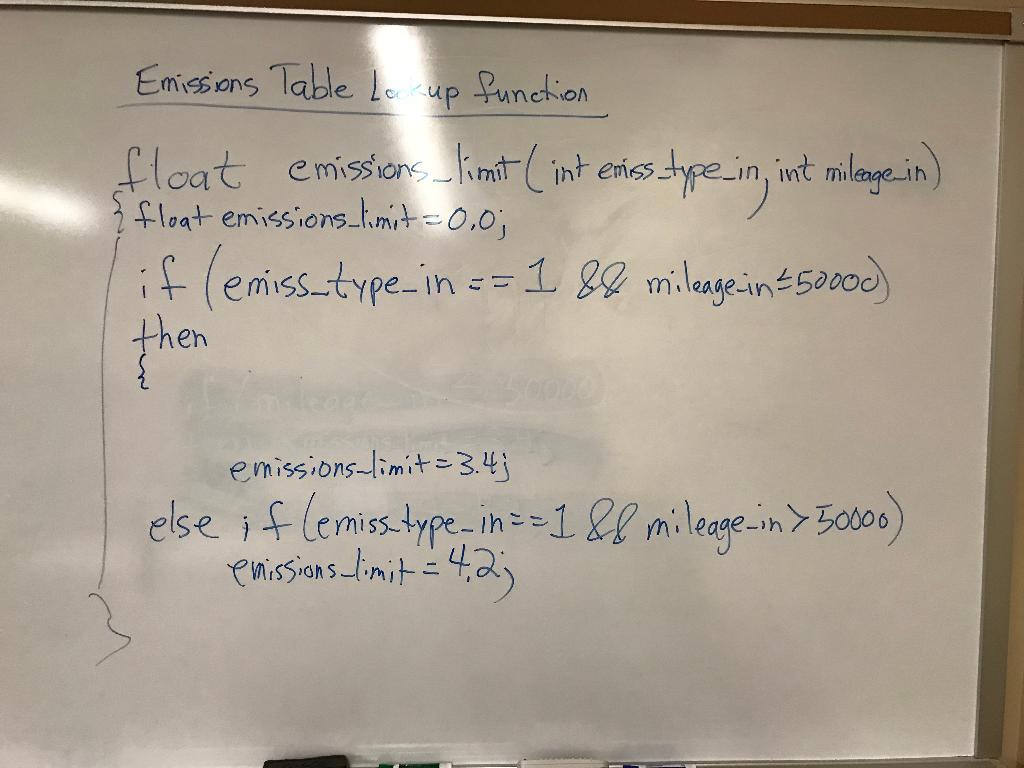 Emissions Table Lookup function
float emissions_limit (int emiss_type_in, int mileage_in)
{ float emissions_limit = 0.0;
if (emiss_type_in == 1 && mileage_in ≤ 50000)
then
{
emissions_limit = 3.4;
else if (emiss_type_in == 1 && mileage_in > 50000)
emissions_limit = 4.2;
}